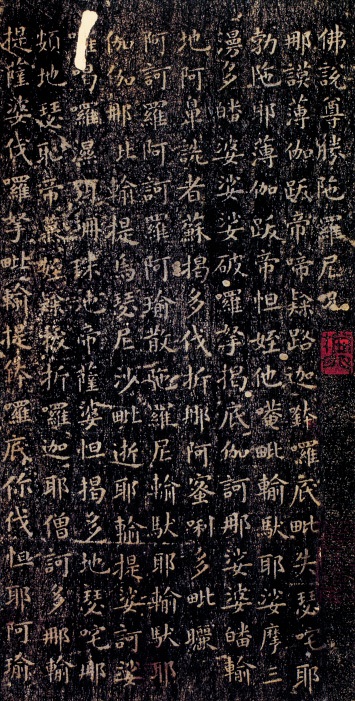 佛說尊勝陁羅尼呪
那謨薄伽跋帝啼隸路迦鉢羅底毗失瑟咤耶
勃陁耶薄伽跋帝怛姪他唵毗輸馱耶娑摩三
漫多皤婆娑娑破囉拏揭底伽訶那娑婆皤輸
地阿鼻詵者蘇揭多伐折那阿蜜唎多毗曬
阿訶羅阿訶羅阿瑜散施羅尼輸馱耶輸馱耶
伽伽那毗輸提烏瑟尼沙毗逝耶輸提娑訶娑
喝羅濕珊珠地帝薩婆怛揭多地瑟咤那
頞地瑟耶帝慕姪隸跋折羅迦耶僧訶多那輸
提薩婆伐羅拏毗輸提鉢羅底你伐怛耶阿瑜